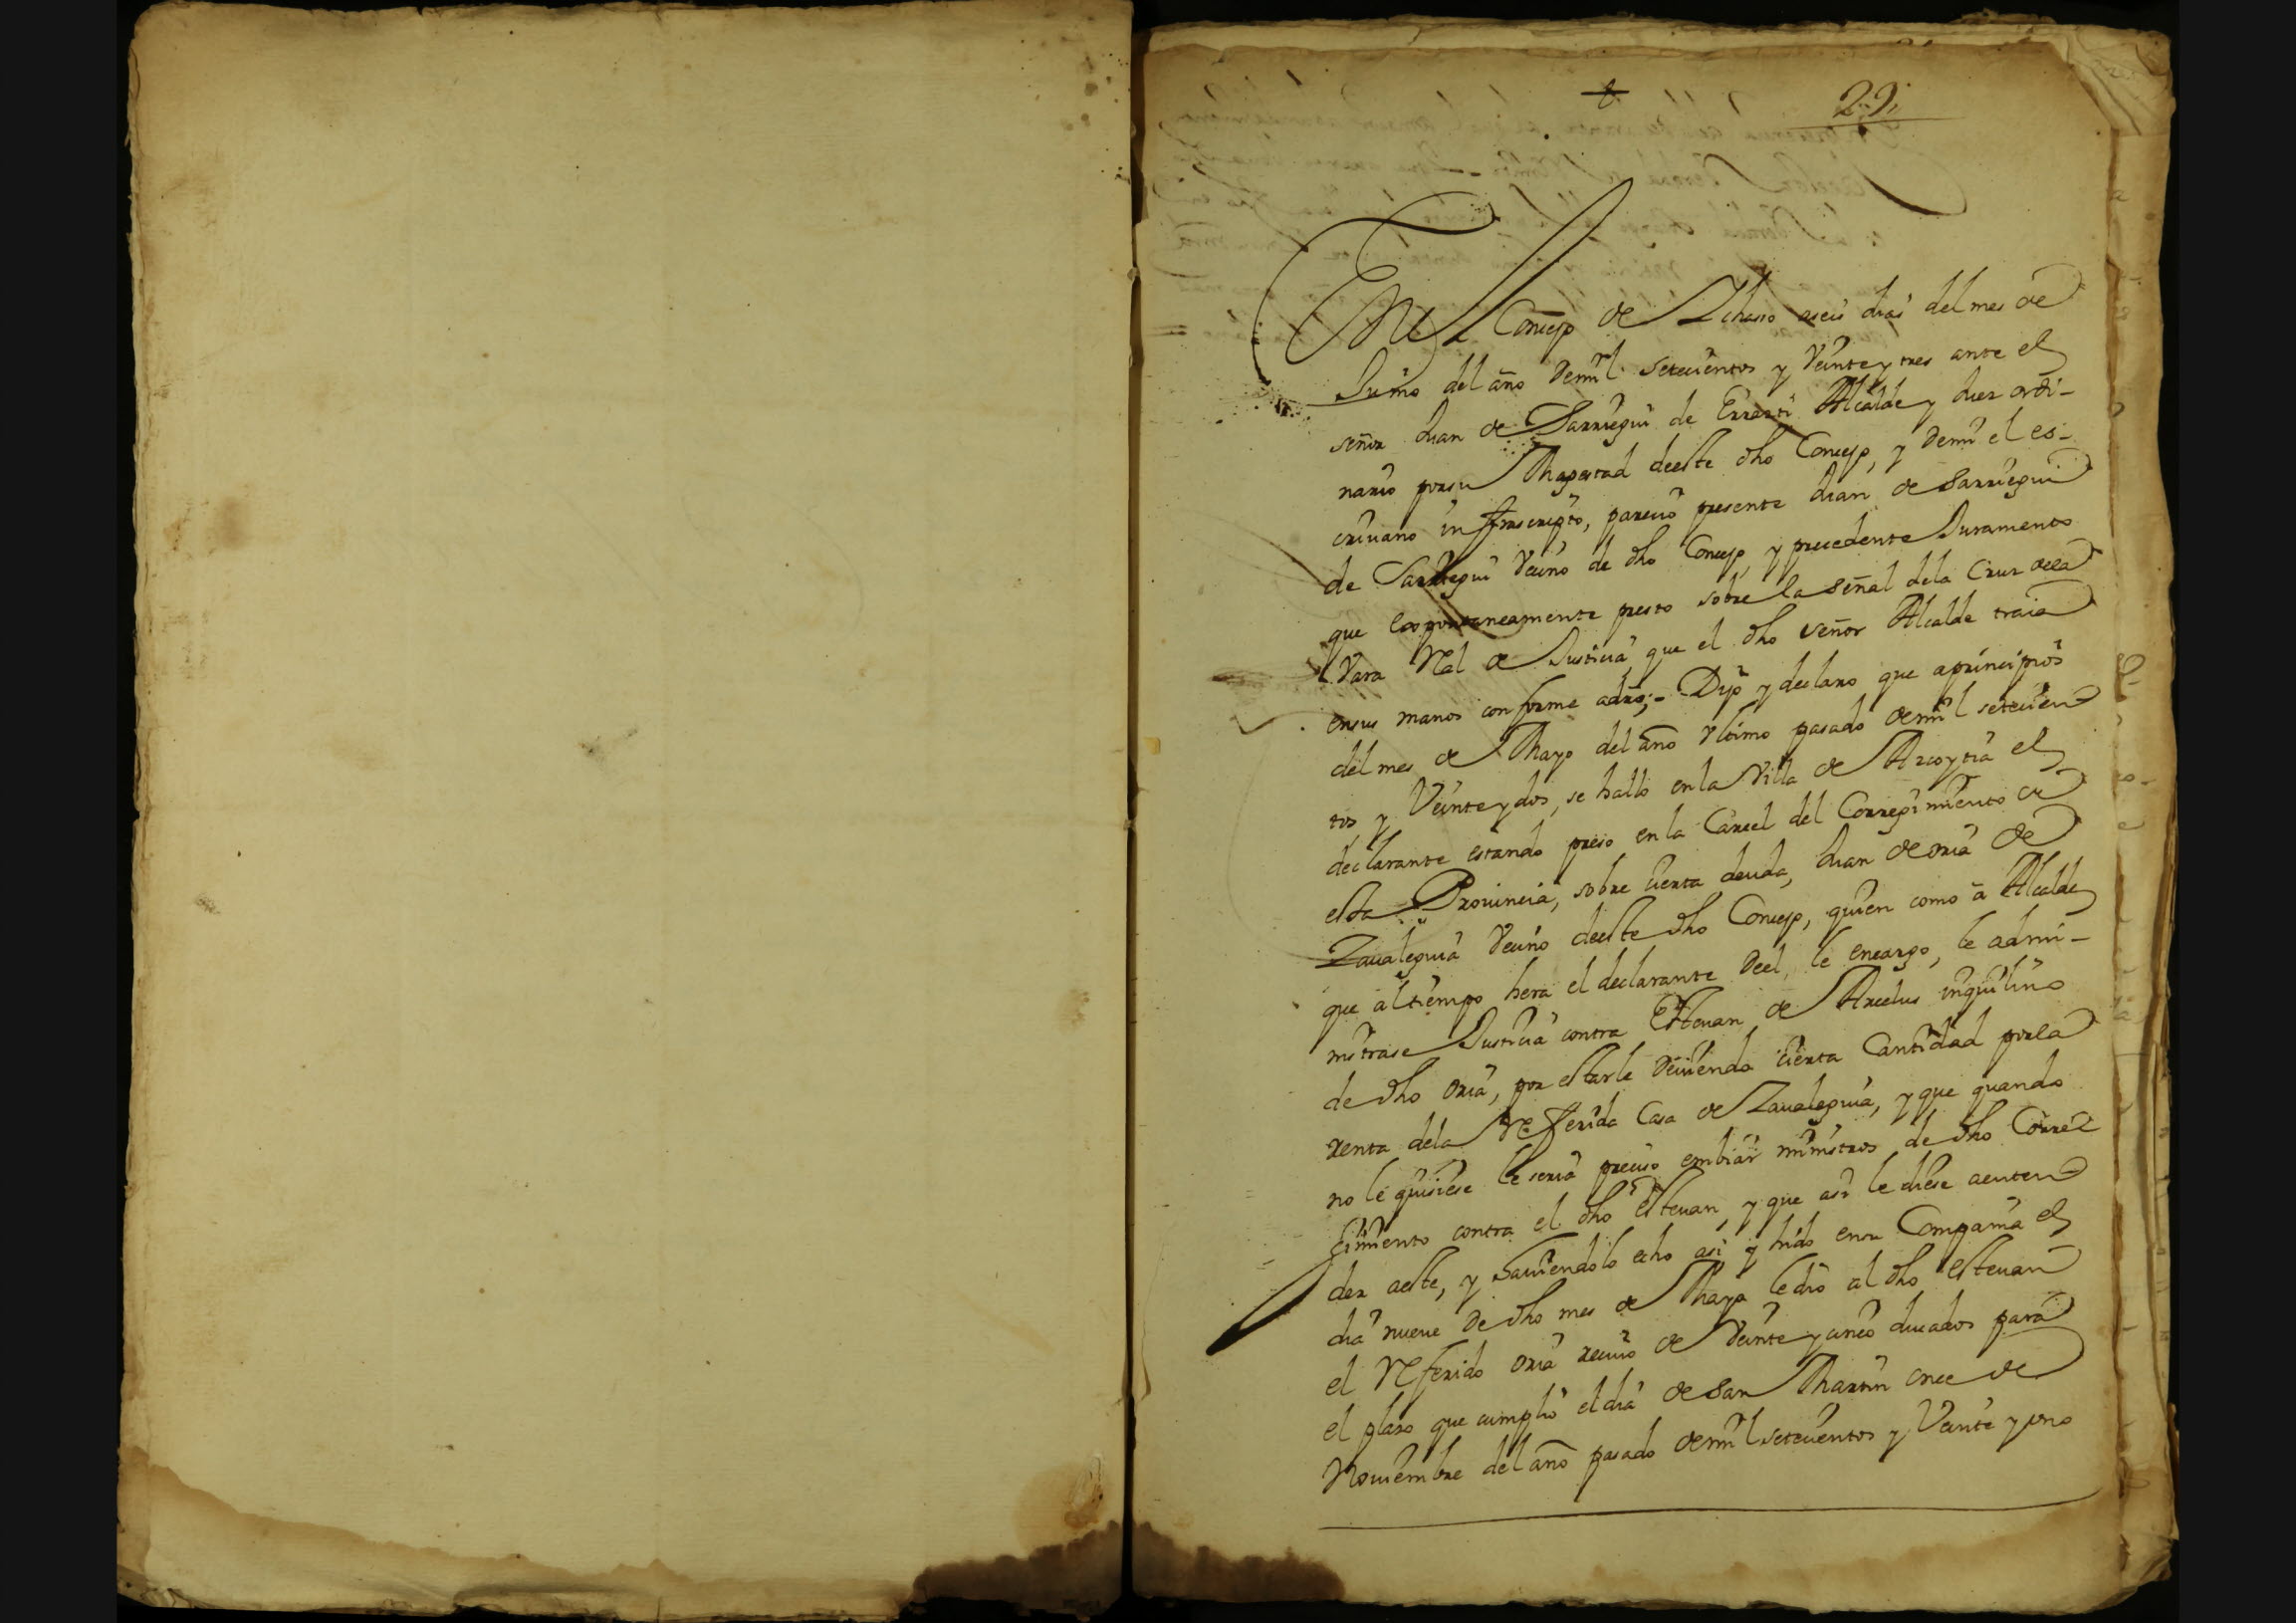 29
En el Concejo de Ichaso a seis dias del mes de
Junio del año de mil setecientos y Veinte y tres ante el
señor Juan de Sarriegui de Errezti Alcalde y Juez ordi-
nario por su Magestad deeste dho Concejo, y de mi el es-
criuano infrascripto, parecio presente Juan de Sarriegui
de Sarriegui Vecino de dho Concejo, y precedente Juramento
que expontaneamente presto sobre la señal de la Cruz de la
Vara Ral de Justicia que el dho señor Alcalde traia
en sus manos conforme a dro;- Dijo y declaro que a principios
del mes de Mayo del año vltimo pasado de mil setecien
tos y Veinte y dos, se hallo en la Villa de Azcoytia el
declarante estando preso en la Carcel del Corregimiento de
esta Prouincia, sobre cierta deuda, Juan de oria de
Zaualeguia Vecino deeste dho Concejo, quien como a Alcalde
que al tiempo hera el declarante deel, le encargo, le admi-
nistrase Justicia contra Esteuan de Arcelus inquilino
de dho oria, por estarle deuiendo cierta Cantidad por la
renta de la Referida Casa de Zaualeguia, y que quando
no le quisiese le seria preciso embiar ministros de dho Corre
gimiento contra el dho esteuan, y que asi le diese a enten
der a este, y hauiendolo echo asi y hido en su Compañia el
dia nueue de dho mes de Mayo le dio al dho esteuan
el Referido oria reciuo de Veinte y cinco ducados para
el plazo que cumplio el dia de San Martin once de
Nouiembre del año pasado de mil setecientos y Veinte y uno